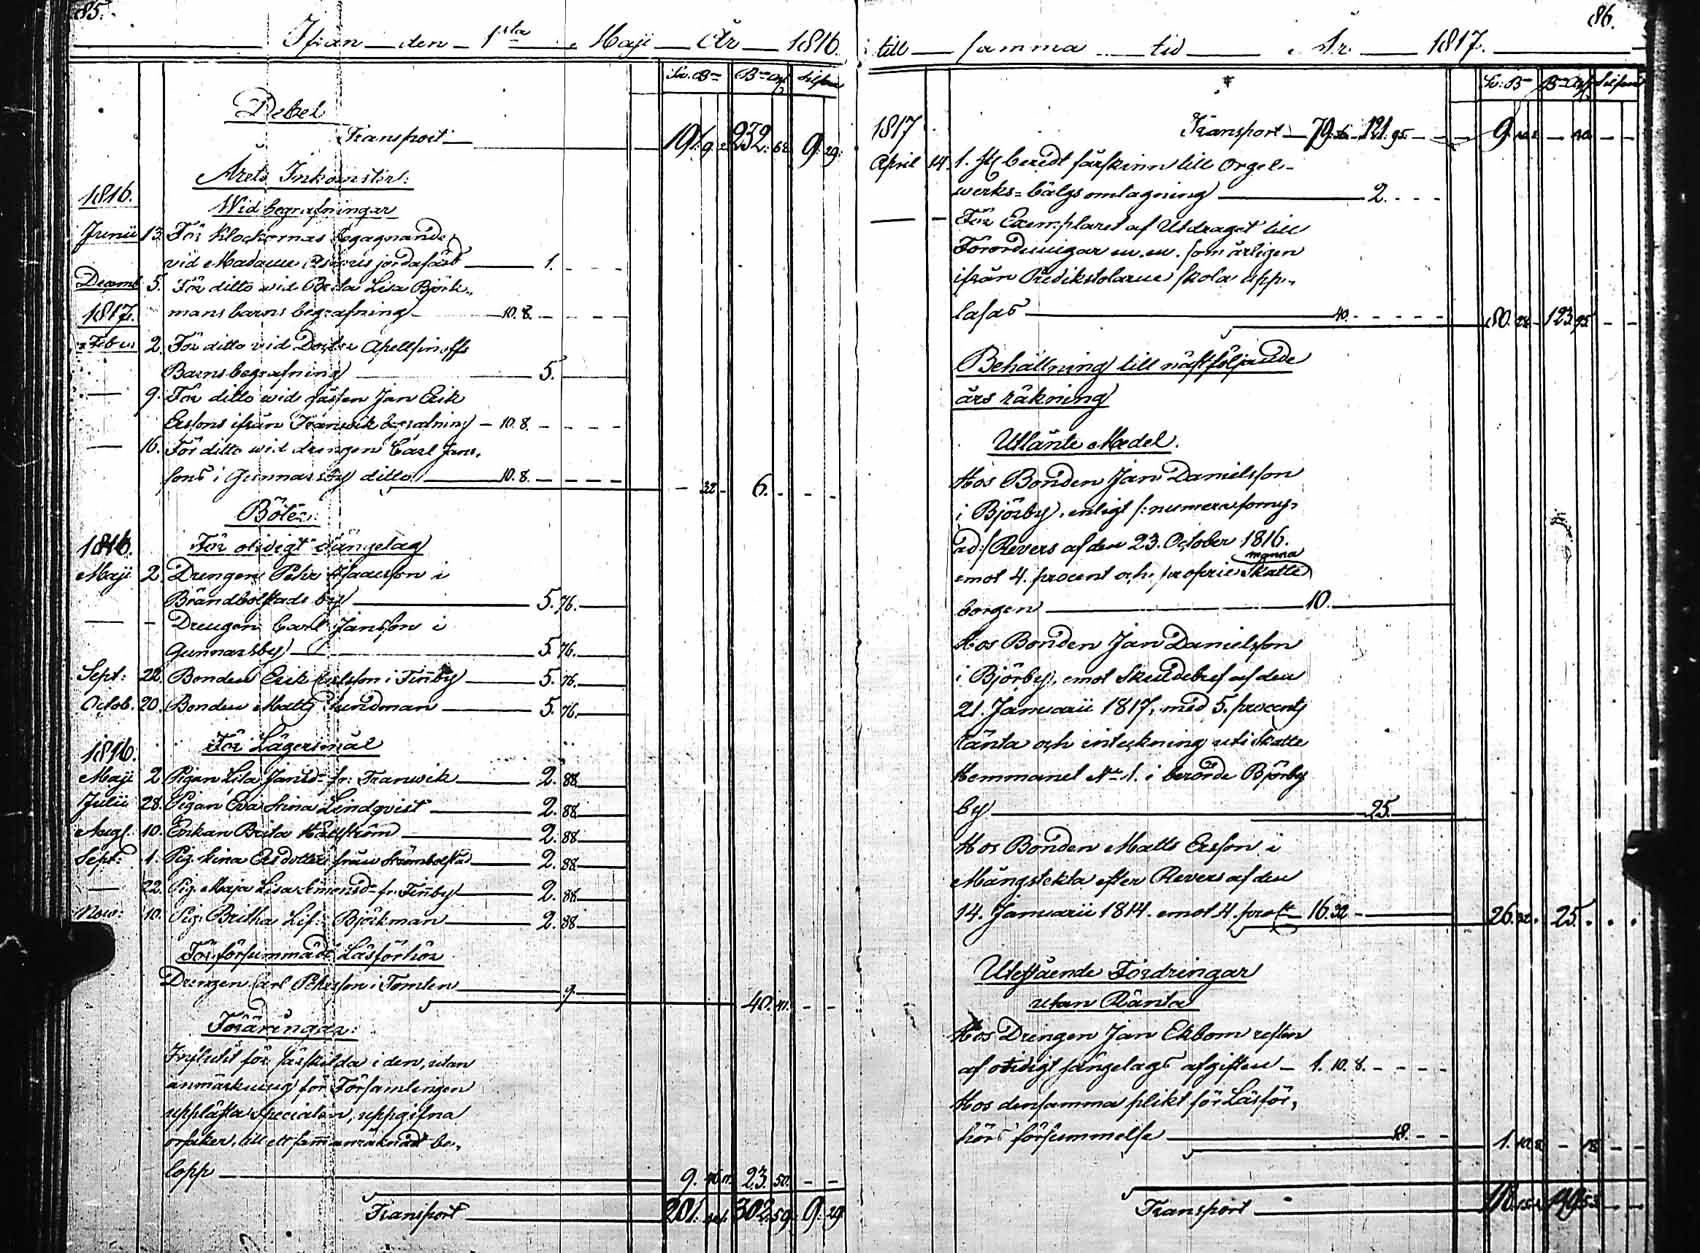 85.
Ifrån den 1sta Maji År 1816.
Debet
Transport 191. 9. 232. 9. 29.
Årets Inkomster:
1816.
Wid begrafningar
Junii 13. För Klockornas begagnande
vid Madame jordafärd 1.
Decemb. 5. För ditto wid Brita Lisa Björk-
1817. mans barns begrafning 10. 8.
Febr. 2. För ditto vid
Barns begrafning 5.
9. För ditto wid Jan Erik
Ersons ifrån Tranwik begrafning 10. 8.
16. För ditto wid drengen Carl Jans-
sons i Gunnarsby ditto 10. 8. 32. 6.
Böter:
1816. För otidigt sängelag
Maji 2. Drengen Pehr Isacsson i
Brändbolstads by 5. 76.
Drengen Carl Jansson i
Gunnarsby 5. 76.
Sept: 22. Bonden Erik Ersson i Finby 5. 76.
Octob. 20. Bonden Matts Sundman 5. 76.
1816. För Lägersmål
Maji 2. Pigan Lisa Jansd:r fr. Tranwik 2. 88.
Julii 28. Pigan Eva Stina Lindqvist 2. 88.
Aug. 10. Enkan Brita Hällström 2. 88.
Sept: 1. Pig. Stina Ersdotter från 2. 88.
22. Pig. Maja Lisa Simonsd:r fr. Finby 2. 88.
Nov: 10. Pig. Britha Lis: Björkman 2. 88.
För försummade Läsförhör
Drengen Carl Pehrsson i Tomten 9. 40.
Föräringar:
Influtit för särskilda i den, utan
anmärkning för Församlingen
upplästa Specialen, uppgifna
orsaker, till ett sammanräknadt be-
lopp 9. 23. 50.
Transport 201. 302. 59. 9. 29
86.
till samma tid År 1817.
1817 Transport 79. 121. 95. 9.
April 14. 1. st beredt fårskinn till Orgel-
werks-bälgs omlagning 2.
För Exemplaret af Utdraget till
Förordningar m.m. som årligen
ifrån Predikstolarne skola upp-
läsas 40. 80. 28. 123. 95.
Behållning till nästföljande
års räkning
Utlånte Medel.
Hos Bonden Jan Danielsson
i Björby, enligt
Revers af den 23. October 1816.
emot 4. procent och proprie Skatte
manna
borgen 10.
Hos Bonden Jan Danielsson
i Björby, emot Skuldebref af den
21. Januarii 1817, med 5. procents
ränta och inteckning uti Skatte
Hemmanet N:o 1. i berörde Björby
by 25.
Hos Bonden Matts Ersson i
Mångstekta efter Revers af den
14. Januarii 1814. emot 4. proc:t 16. 32 26. 32. 25.
Utestående Fordringar
utan Ränta
Hos Drengen Jan Ekbom resten
af otidigt sängelags afgiften 1. 10. 8.
Hos densamma plikt för Läsför-
hörs försummelse 18. 1. 10. 8 18.
Transport